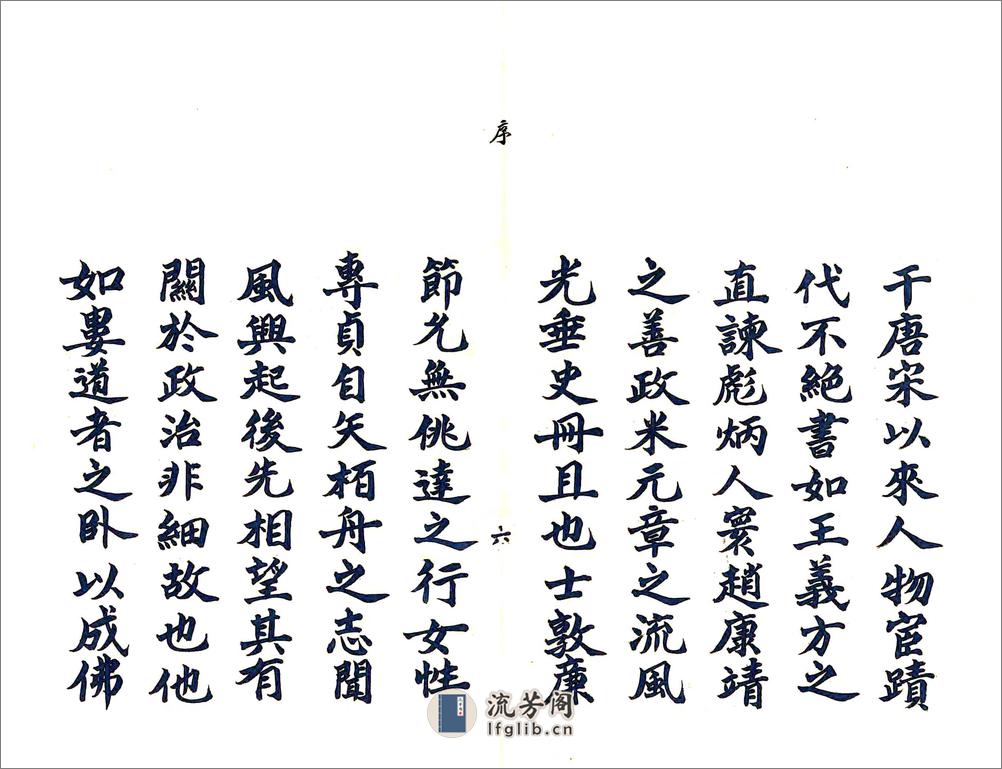 干唐宋以來人物宦蹟
代不絕書如王義方之
直諫彪炳人寰趙康靖
之善政米元章之流風
光垂史冊且也士敦廉
序
六
節允無佻達之行女性
專貞自矢栢舟之志聞
風興起後先相望其有
關於政治非細故也他
如婁道者之卧以成佛
流芳阁
lfglib.cn